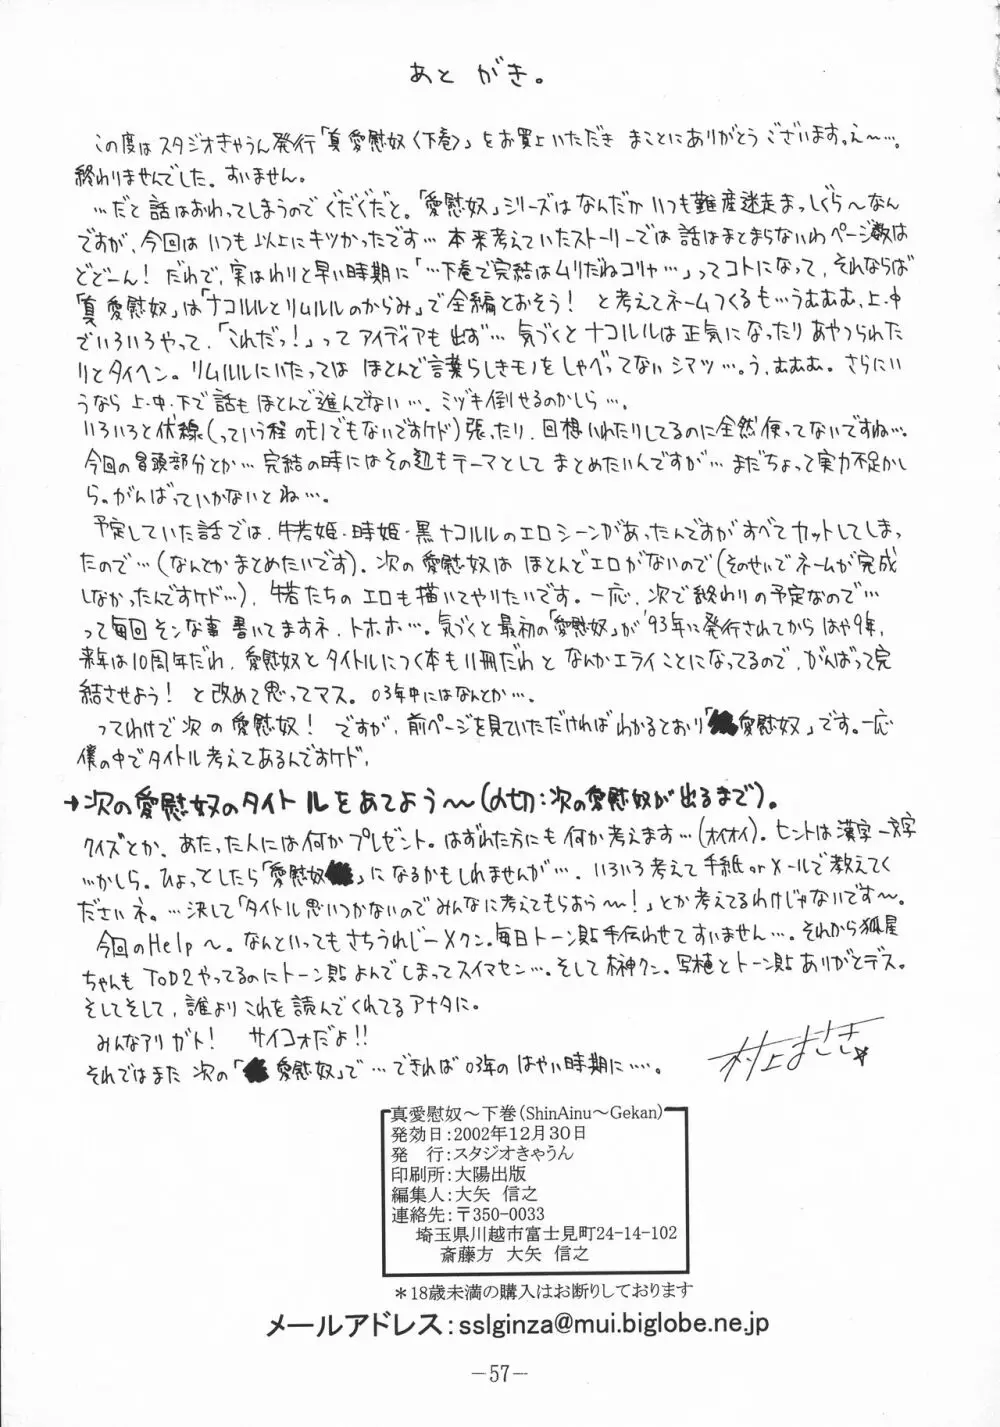 あとがき。
この度はスタジオきゃうん発行「真愛慰奴〈下巻〉」をお買上いただき まことにありがとうございます。え～…。
終わりませんでした。すいません。
…だと話はおわってしまうのでぐだぐだと。「愛慰奴」シリーズはなんだかいつも難産迷走まっしぐら～なん
ですが、今回はいつも以上にキツかったです… 本来考えていたストーリーでは話はまとまらないわページ数は
どどーん！だわで、実はわりと早い時期に「…下巻で完結はムリだねコリャ…」ってコトになって、それならば
「真愛慰奴」は「ナコルルとリムルルのからみ」で全編とおそう！ と考えてネームつくるも…うむむむ、上・中
でいろいろやって、「これだっ！」ってアイディアも出ず… 気づくとナコルルは正気になったりあやつられた
りとタイヘン。リムルルにいたっては ほとんど言葉らしきモノをしゃべってないシマツ…。う、むむむ。さらにい
うなら上・中・下で話もほとんど進んでない…。ミヅキ倒せるのかしら…。
いろいろと伏線(っていう程のモノでもないですケド)張ったり、回想いれたりしてるのに全然使ってないですね…。
今回の冒頭部分とか… 完結の時にはその辺もテーマとして まとめたいんですが… まだちょって実力不足かし
ら。がんばっていかないとね…。
予定していた話では、牛若姫・時姫・黒ナコルルのエロシーンがあったんですがすべてカットしてしまっ
たので…(なんとかまとめたいです)。次の愛慰奴は ほとんどエロがないので(そのせいでネームが完成
しなかったんですケド…)、牛若たちのエロも描いてやりたいです。一応、次で終わりの予定なので…
って毎回そンな事 書いてますネ、トホホ…。気づくと最初の「愛慰奴」が'93年に発行されてからはや9年、
来年は10周年だわ、愛慰奴とタイトルにつく本も11冊だわと なんかエライことになってるので、がんばって完
結させよう！ と改めて思ってマス。03年中にはなんとか…。
ってわけで次の愛慰奴！ ですが、前ページを見ていただければわかるとおり「愛慰奴」です。一応
僕の中でタイトル考えてあるんですケド、
→次の愛慰奴のタイトルをあてよう～(〆切：次の愛慰奴が出るまで)。
クイズとか、あたった人には何かプレゼント。はずれた方にも何か考えます…(オイオイ)。ヒントは漢字一文字
…かしら。ひょっとしたら「愛慰奴」になるかもしれませんが…。いろいろ考えて手紙orメールで教えてく
ださいネ。…決して「タイトル思いつかないのでみんなに考えてもらおう～！」とか考えてるわけじゃないです～。
今回のHelp～。なんといってもさちうれじーXクン。毎日トーン貼手伝わせてすいません…。それから狐星
ちゃんもToD2やってるのにトーン貼よんでしまってスイマセン…。そして榊神クン。写植とトーン貼ありがとデス。
そしてそして、誰よりこれを読んでくれてるアナタに。
みんなアリガト！ サイコォだよ!!
それではまた次の「愛慰奴」で…できれば03年のはやい時期に…‥。
村上まさき
真愛慰奴～下巻(ShinAinu～Gekan)
発効日：2002年12月30日
発　行：スタジオきゃうん
印刷所：大陽出版
編集人：大矢 信之
連絡先：〒350-0033
埼玉県川越市富士見町24-14-102
斎藤方 大矢 信之
＊18歳未満の購入はお断りしております
メールアドレス：sslginza@mui.biglobe.ne.jp
－57－